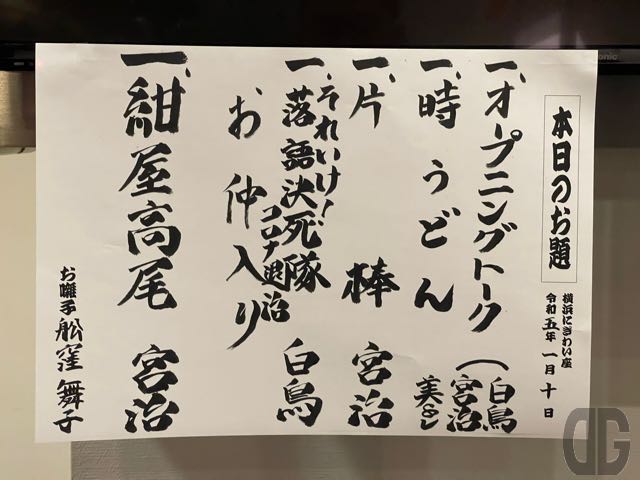 本日のお題
横浜にぎわい座
令和五年 一月 十 日
一、オープニングトーク (白鳥 宮治
一、時うどん 美るく
一、片棒 宮治
一、それいけ!
落語決死隊 白鳥
コロナ退治
お仲入り
一、紺屋高尾 宮治
お囃子 舩窪舞子
DG